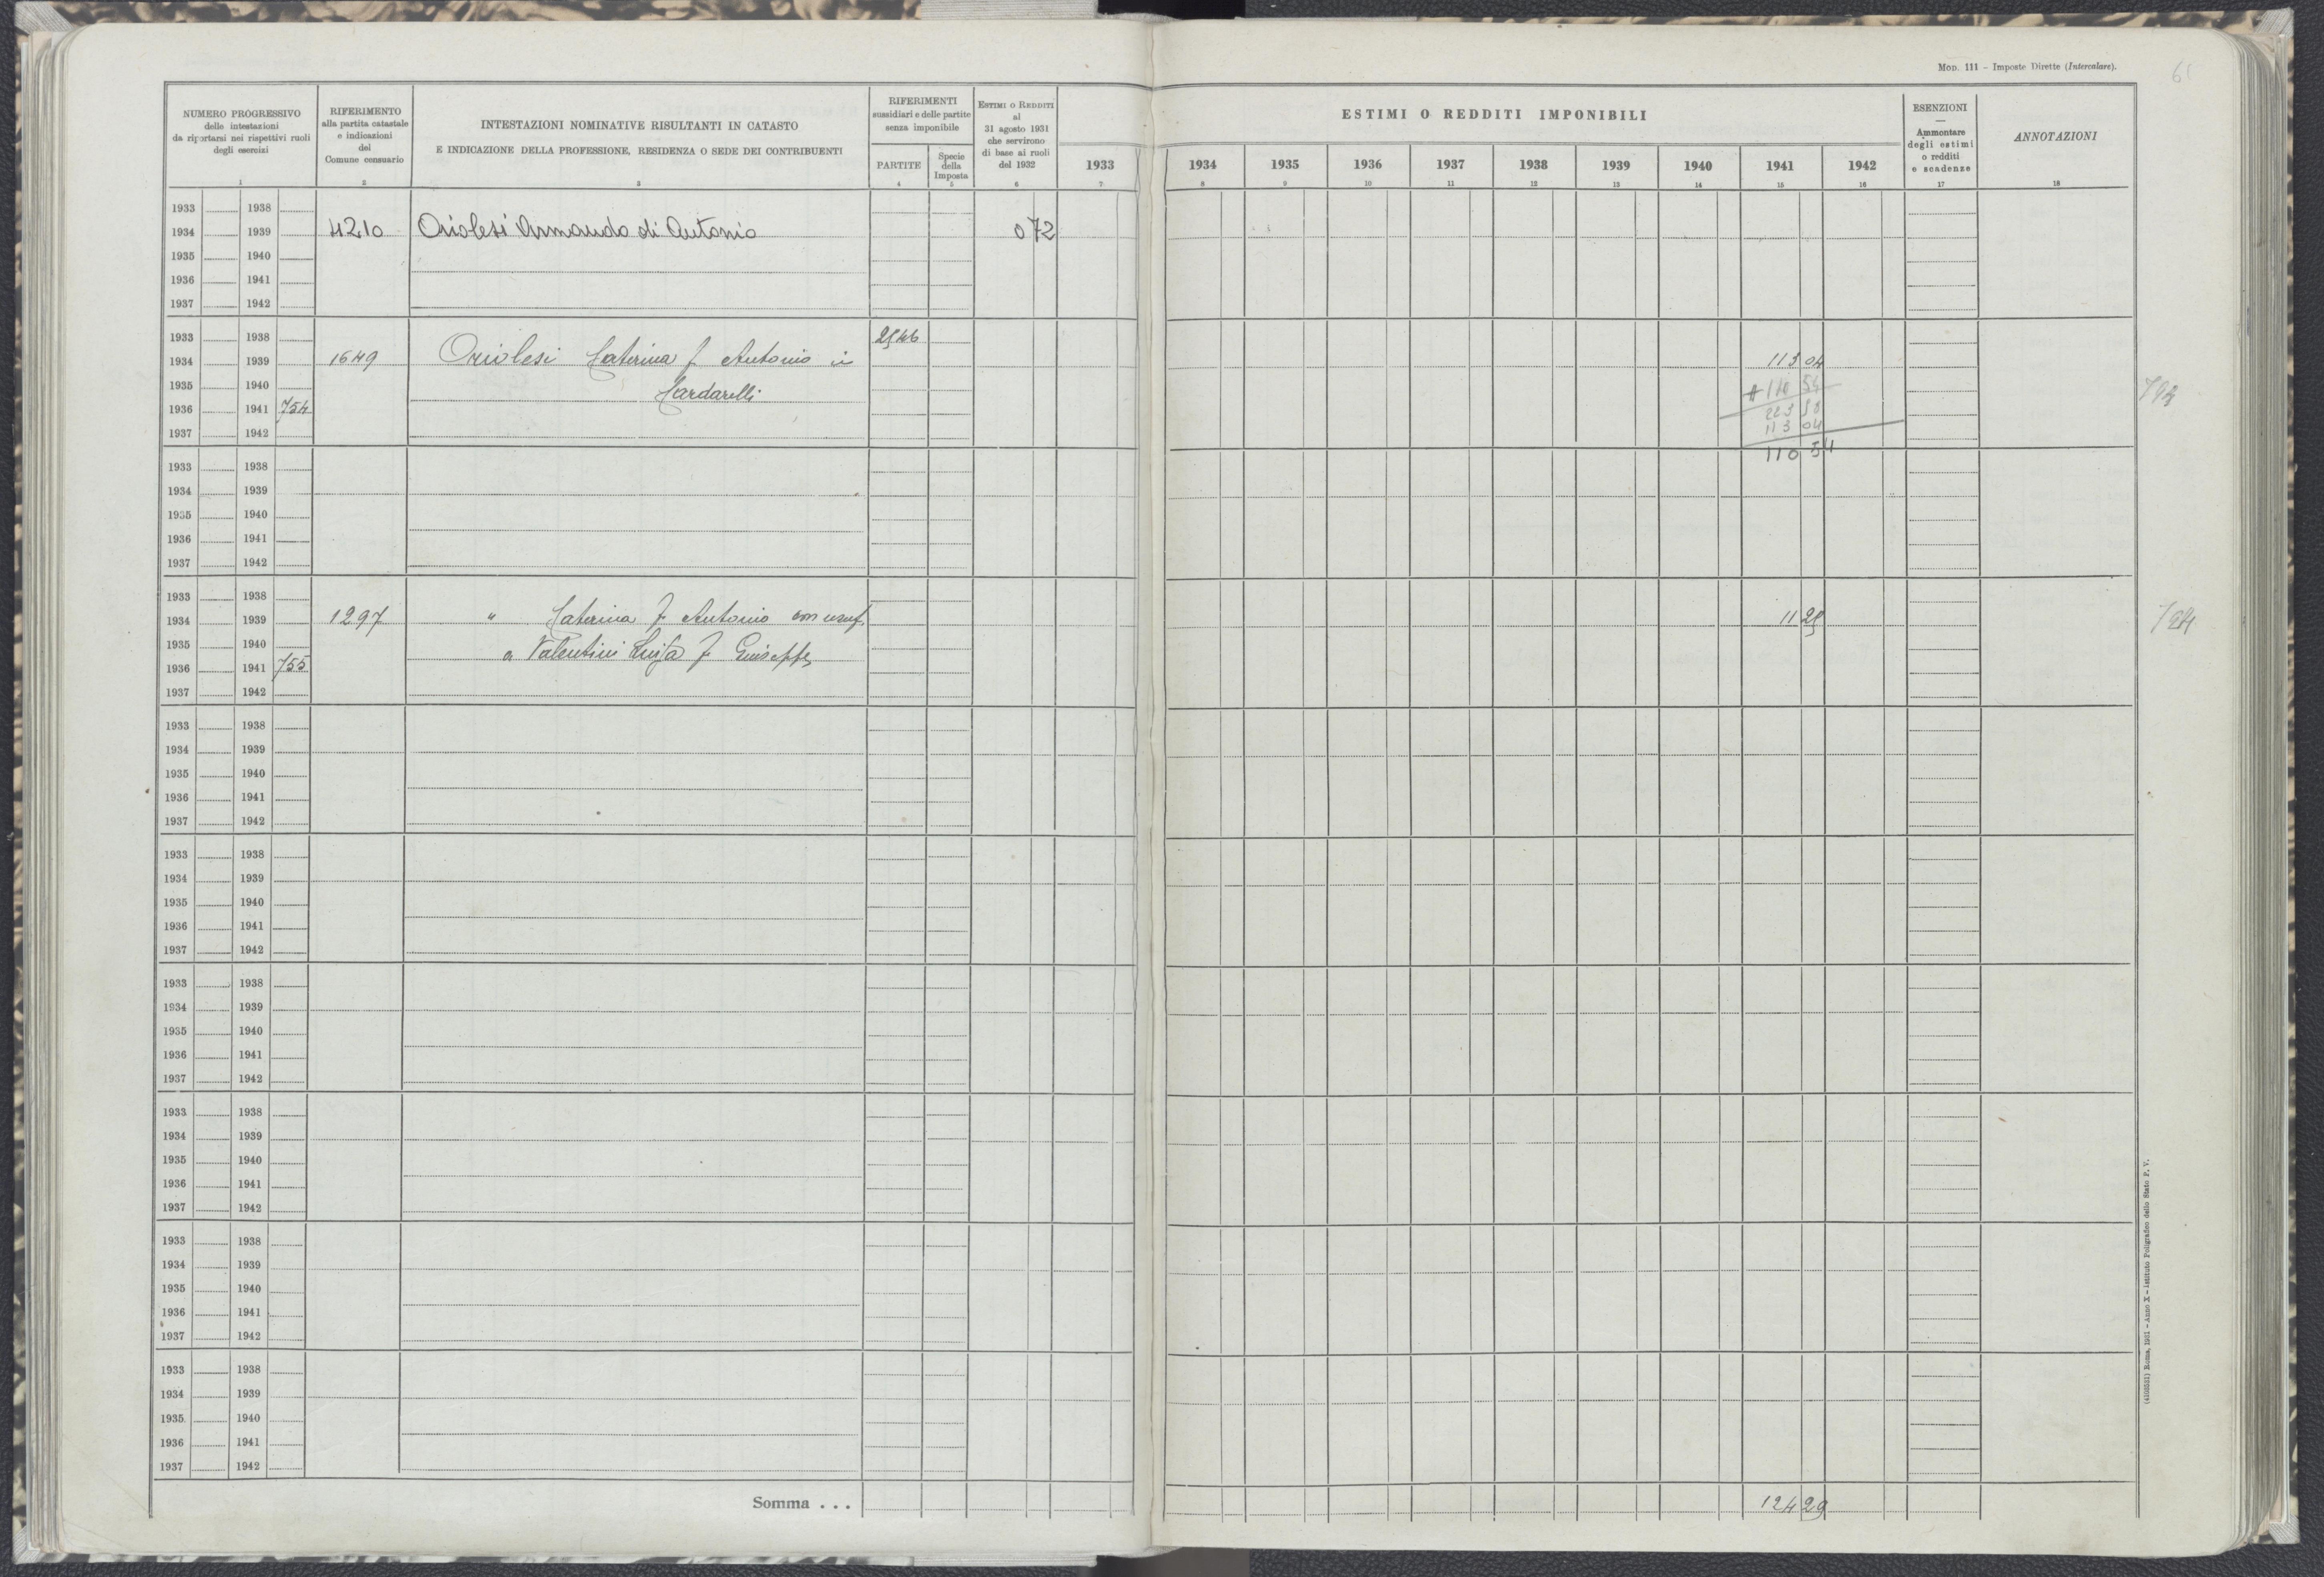 Mod. 111 - Imposte Dirette (Intercalare).
61
NUMERO PROGRESSIVO
delle intestazioni
da riportarsi nei rispettivi ruoli
degli esercizi
1
RIFERIMENTO
alla partita catastale
e indicazioni
del
Comune censuario
2
INTESTAZIONI NOMINATIVE RISULTANTI IN CATASTO
E INDICAZIONE DELLA PROFESSIONE, RESIDENZA O SEDE DEI CONTRIBUENTI
3
RIFERIMENTI
sussidiari e delle partite
senza imponibile
PARTITE
4
Specie
della
Imposta
5
ESTIMI O REDDITI
al
31 agosto 1931
che servirono
di base ai ruoli
del 1932
6
ESTIMI O REDDITI IMPONIBILI
1933 1934 1935 1936 1937 1938 1939 1940 1941 1942
7 8 9 10 11 12 13 14 15 16
ESENZIONI
—
Ammontare
degli estimi
o redditi
e scadenze
17
ANNOTAZIONI
18
1933 1938
1934 1939 4210 Oriolesi Armando di Antonio 0 72
1935 1940
1936 1941
1937 1942
1933 1938 2546
1934 1939 1649 Oriolesi Caterina f Antonio in 113 04
1935 1940 Cardarelli 110 54
1936 1941 754 223 58
1937 1942 113 04
110 54
1933 1938
1934 1939
1935 1940
1936 1941
1937 1942
1933 1938
1934 1939 1297 " Caterina f Antonio con usuf. 11 25
1935 1940 a Valentini Luisa f Giuseppe
1936 1941 755
1937 1942
1933 1938
1934 1939
1935 1940
1936 1941
1937 1942
1933 1938
1934 1939
1935 1940
1936 1941
1937 1942
1933 1938
1934 1939
1935 1940
1936 1941
1937 1942
1933 1938
1934 1939
1935 1940
1936 1941
1937 1942
1933 1938
1934 1939
1935 1940
1936 1941
1937 1942
1933 1938
1934 1939
1935 1940
1936 1941
1937 1942
Somma . . . 124 29
(4208581) Roma, 1931 - Anno X - Istituto Poligrafico dello Stato P. V.